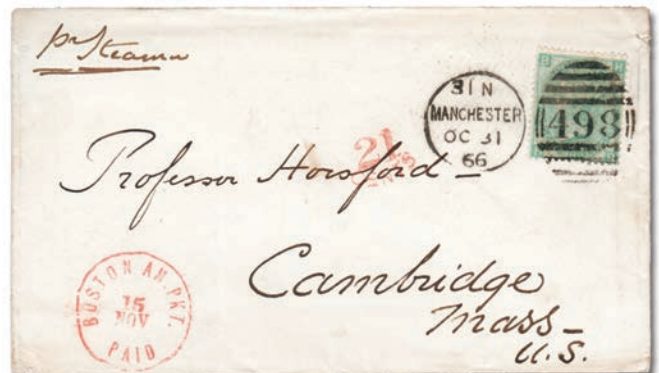 pr Steamer
31 N
MANCHESTER
OC 31
66
498
21
CENTS
Professor Horsford -
Cambridge
Mass -
U.S.
BOSTON AM. PKT.
15
NOV
PAID